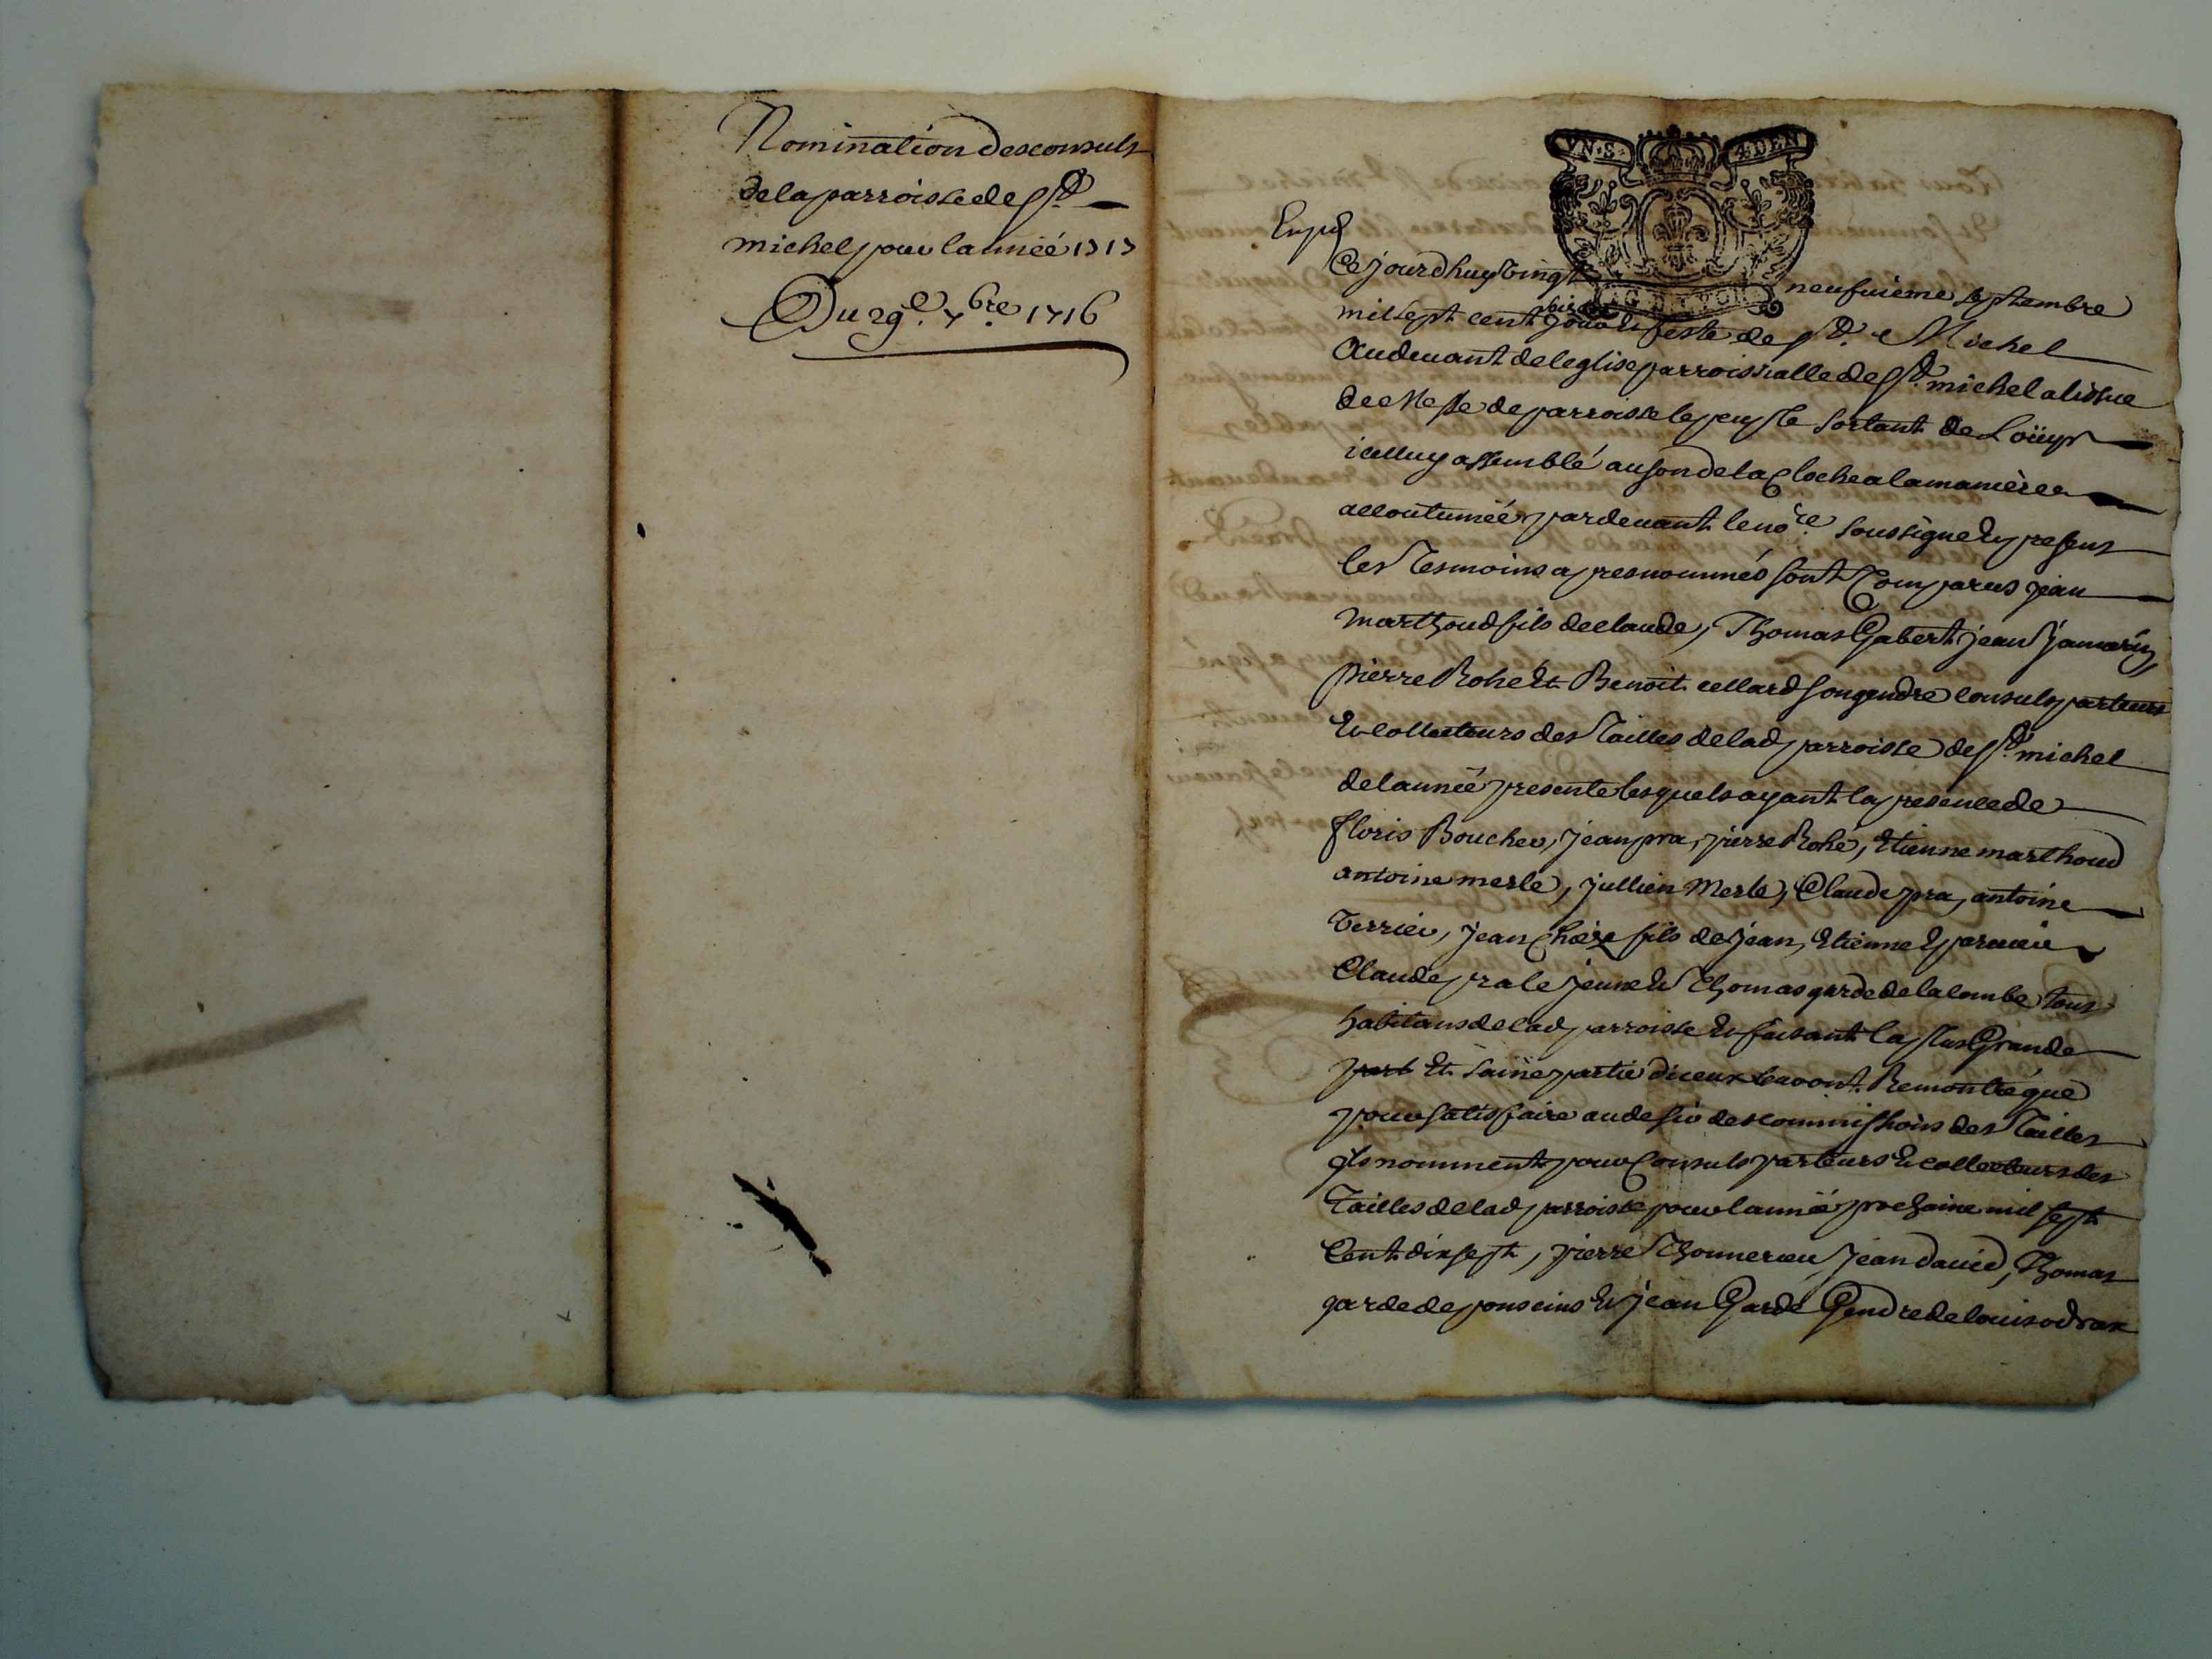 Nomination des consuls
de la parroisse de St
michel pour lanneé 1717
Du 29e. 7bre 1716
VN.S. 4.DEN
Exped
Ce jourdhuy vingt neufuieme septambre
mil sept cent seize jour & feste de St. Michel
Audeuant de leglise parroissialle de St. michel a lissue
de Messe de parroisse le peuple sortant de Loüyr
icelluy assemblé au son de la Cloche a la maniere
accoutumeé pardeuant le nore. soussigne & presens
les Tesmoins apres nommés sont Comparus jean
marthoud fils de claude, Thomas Gabert jean
pierre Rohé Et Benoit cellard son gendre consuls parteurs
& collecteurs des Tailles de lad parroisse de St. michel
de lanneé presente lesquels ayant la presence de
floris Boucher, jean pra, pierre Rohé, Etienne marthoud
antoine merle, jullien Merle, Claude pra, antoine
Terrier, jean fils de jean, Etienne
Claude pra le jeune & Thomas garde de la combe tous
habitans de lad parroisse & faisant la plus Grande
part Et saine partie diceux leur ont Remontré que
pour satisfaire au desir des commissions des Tailles
ils nomment pour Consuls parteurs & collecteurs des
Tailles de lad parroisse pour lanneé prochaine mil sept
Cent dix sept, pierre Thonnerieu jean dauid, Thomas
garde de ponscins & jean Garde Gendre de louis odrax